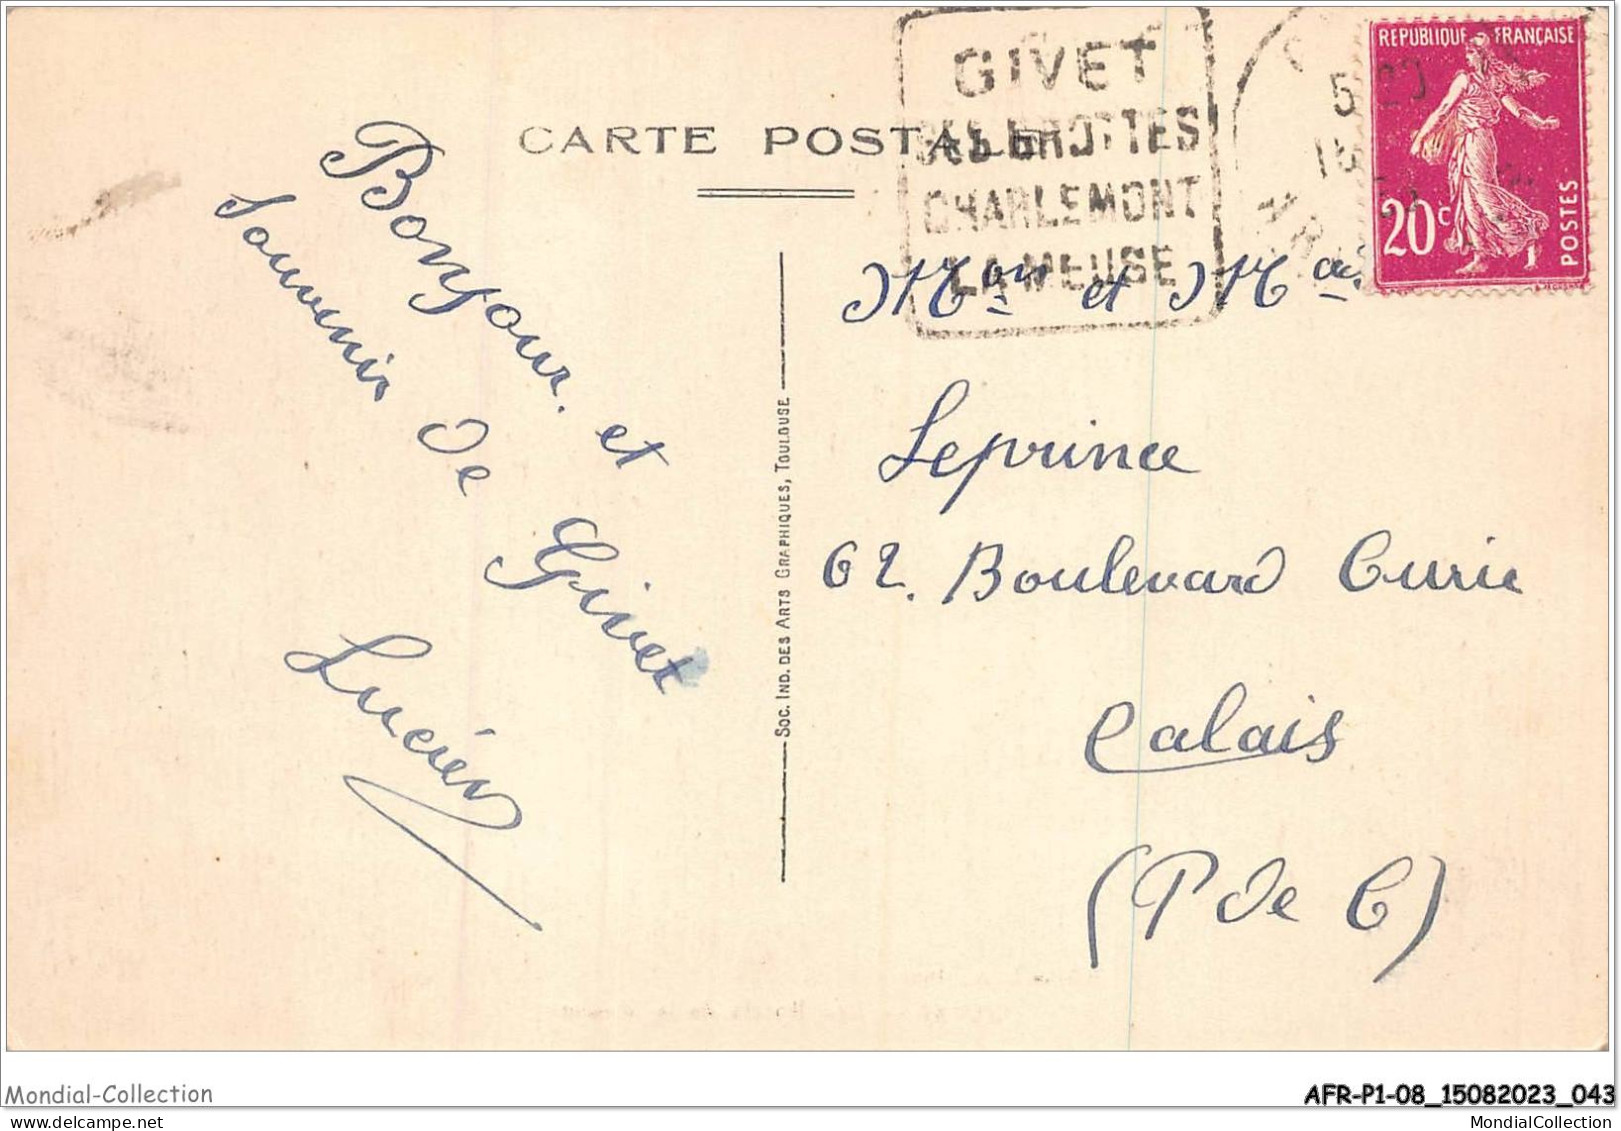 CARTE POSTALE
GIVET
SES GROTTES
CHARLEMONT
LA MEUSE
5
REPUBLIQUE FRANÇAISE
20c
POSTES
Bonjour et
Souvenir de Givet
Lucien
SOC. IND. DES ARTS GRAPHIQUES, TOULOUSE
Mon et M
Leprince
62. Boulevard Curie
Calais
(P de C)
Mondial-Collection
AFR-P1-08_15082023_043
www.delcampe.net
MondialCollection